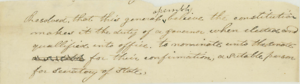 assembly
Resolved that this general believe the constitution
makes it the duty of a governor, when elected and
qualified into office, to nominate unto the senate
for their confirmation, a suitable person
for secretary of state.